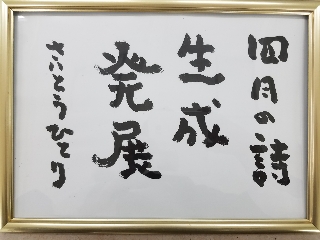 四月の詩
生成
発展
さいとうひとり